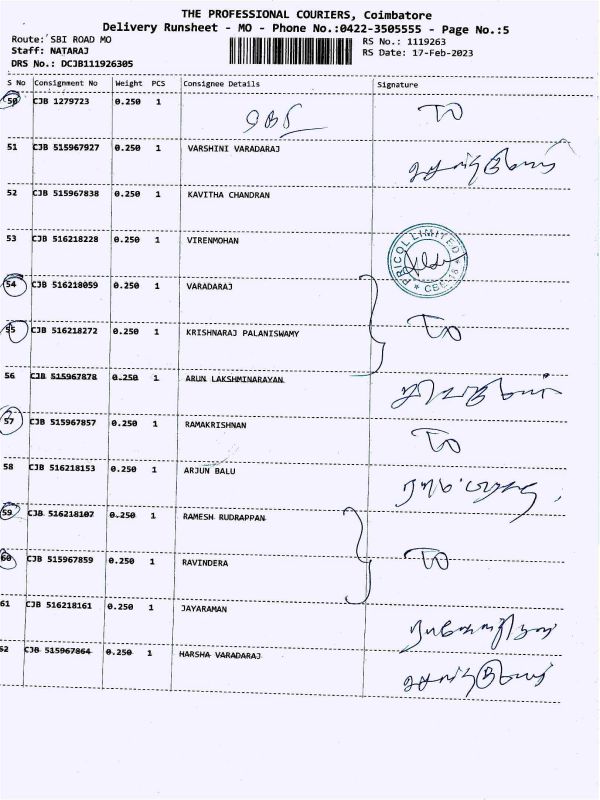 THE PROFESSIONAL COURIERS, Coimbatore
Delivery Runsheet - MO - Phone No.:0422-3505555 - Page No.:5
Route: SBI ROAD MO RS No.: 1119263
Staff: NATARAJ RS Date: 17-Feb-2023
DRS No.: DCJB111926305
S No Consignment No Weight PCS Consignee Details Signature
50 CJB 1279723 0.250 1
51 CJB 515967927 0.250 1 VARSHINI VARADARAJ
52 CJB 515967838 0.250 1 KAVITHA CHANDRAN
53 CJB 516218228 0.250 1 VIRENMOHAN
PRICOL LIMITED
54 CJB 516218059 0.250 1 VARADARAJ
55 CJB 516218272 0.250 1 KRISHNARAJ PALANISWAMY
56 CJB 515967878 0.250 1 ARUN LAKSHMINARAYAN
57 CJB 515967857 0.250 1 RAMAKRISHNAN
58 CJB 516218153 0.250 1 ARJUN BALU
59 CJB 516218107 0.250 1 RAMESH RUDRAPPAN
60 CJB 515967859 0.250 1 RAVINDERA
61 CJB 516218161 0.250 1 JAYARAMAN
62 CJB 515967864 0.250 1 HARSHA VARADARAJ